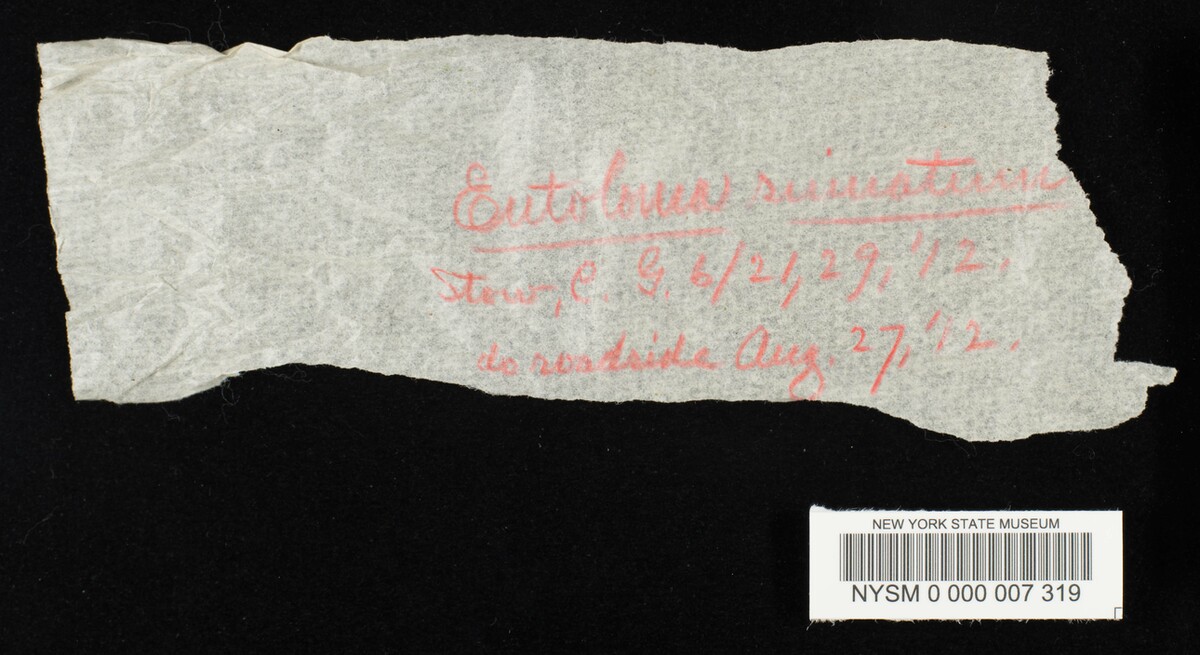 Entoloma sinuatum
Stow, C. G. 6/21, 29, '12.
do roadside Aug. 27, '12.
NEW YORK STATE MUSEUM
NYSM 0 000 007 319